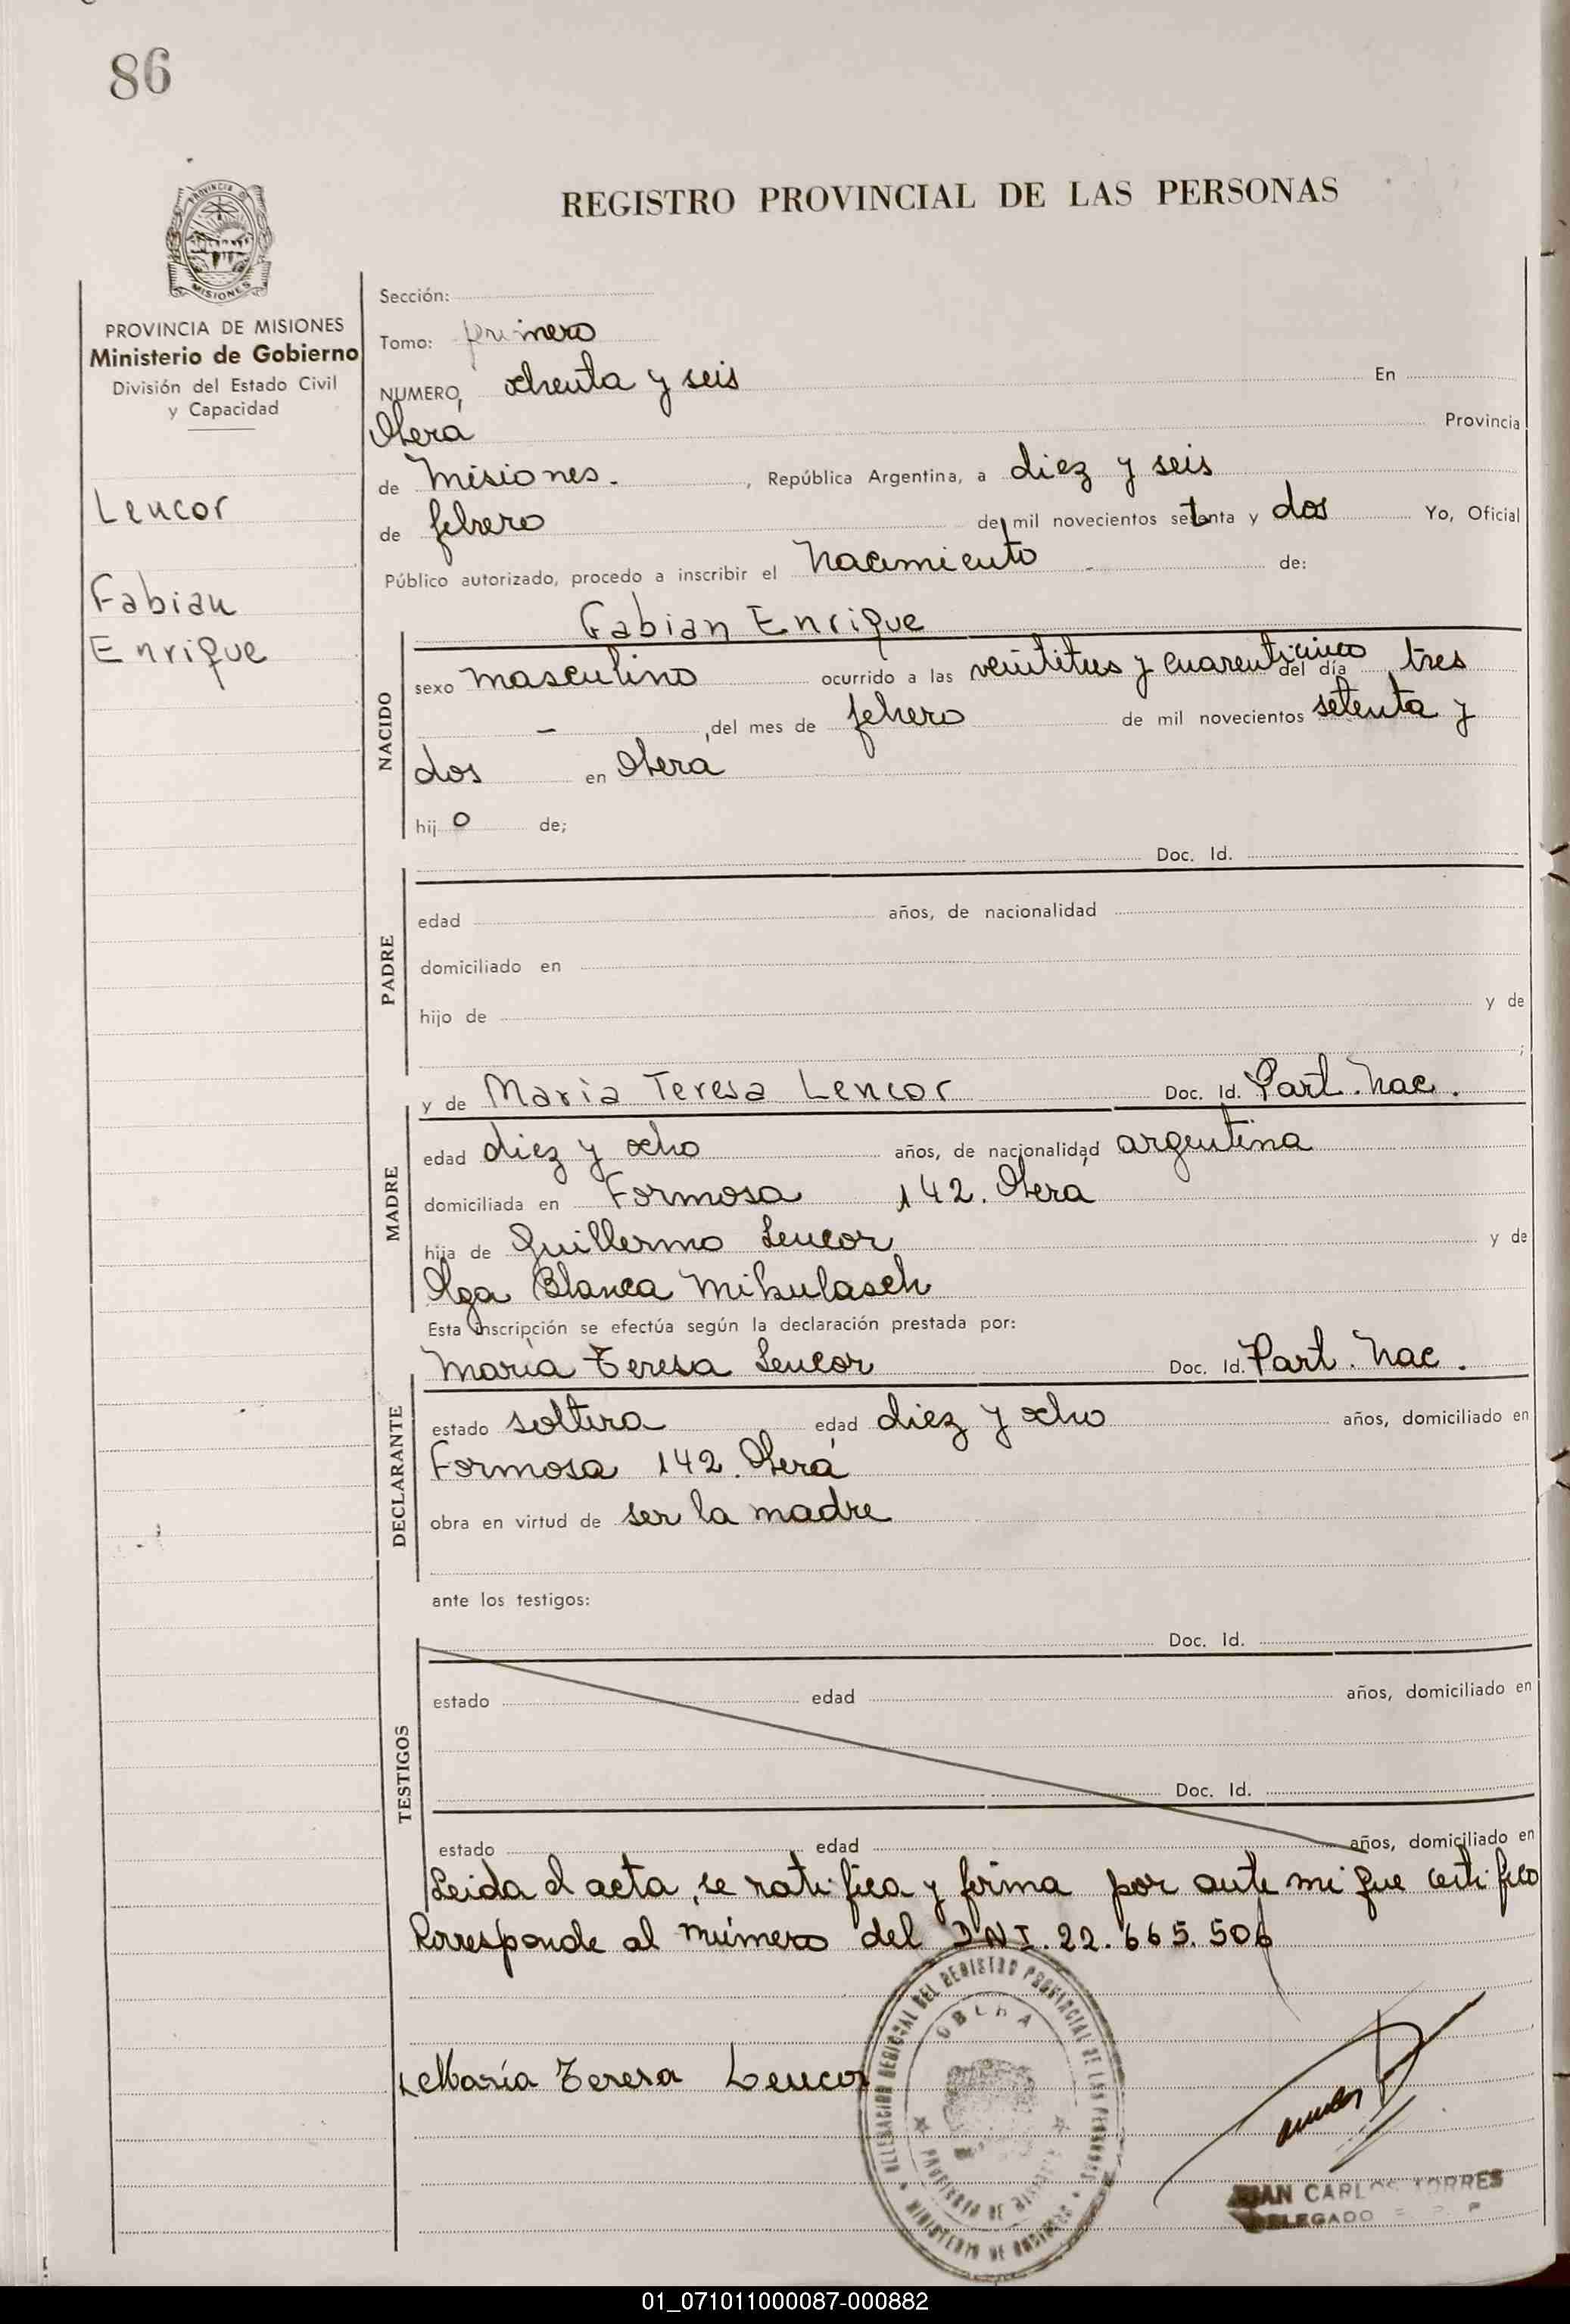 86
PROVINCIA DE MISIONES
REGISTRO PROVINCIAL DE LAS PERSONAS
PROVINCIA DE MISIONES
Ministerio de Gobierno
División del Estado Civil
y Capacidad
Lencor
Fabian
Enrique
Sección:
Tomo: primero
NUMERO, ochenta y seis En
Oberá Provincia
de Misiones. , República Argentina, a diez y seis
de febrero de mil novecientos setenta y dos Yo, Oficial
Público autorizado, procedo a inscribir el nacimiento de:
Fabian Enrique
NACIDO
sexo masculino ocurrido a las veintitres y cuarenticinco del día tres
- ,del mes de febrero de mil novecientos setenta y
dos en Oberá
hijo de;
PADRE
Doc. Id.
edad años, de nacionalidad
domiciliado en
hijo de y de
;
MADRE
y de Maria Teresa Lencor Doc. Id. Part. Nac.
edad diez y ocho años, de nacionalidad argentina
domiciliada en Formosa 142. Oberá
hija de Guillermo Lencor y de
Olga Blanca Mikulasch
Esta inscripción se efectúa según la declaración prestada por:
DECLARANTE
María Teresa Lencor Doc. Id. Part. Nac.
estado soltera edad diez y ocho años, domiciliado en
Formosa 142. Oberá
obra en virtud de ser la madre
ante los testigos:
TESTIGOS
Doc. Id.
estado edad años, domiciliado en
Doc. Id.
estado edad años, domiciliado en
Leida el acta, se ratifica y firma por ante mi que certifico
Corresponde al número del DNI. 22.665.506
María Teresa Lencor
DELEGACION REGIONAL DEL REGISTRO PROVINCIAL DE LAS PERSONAS
OBERA
PROVINCIA DE MISIONES
MINISTERIO DE GOBIERNO
JUAN CARLOS TORRES
DELEGADO
01_071011000087-000882